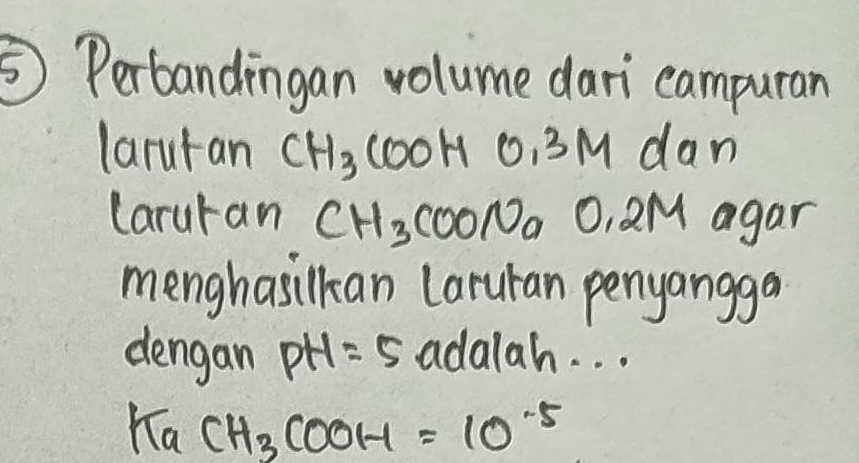 5) Perbandingan volume dari campuran
larutan CH₃COOH 0,3M dan
larutan CH₃COONa 0,2M agar
menghasilkan larutan penyangga
dengan pH = 5 adalah...
Ka CH₃COOH = 10⁻⁵